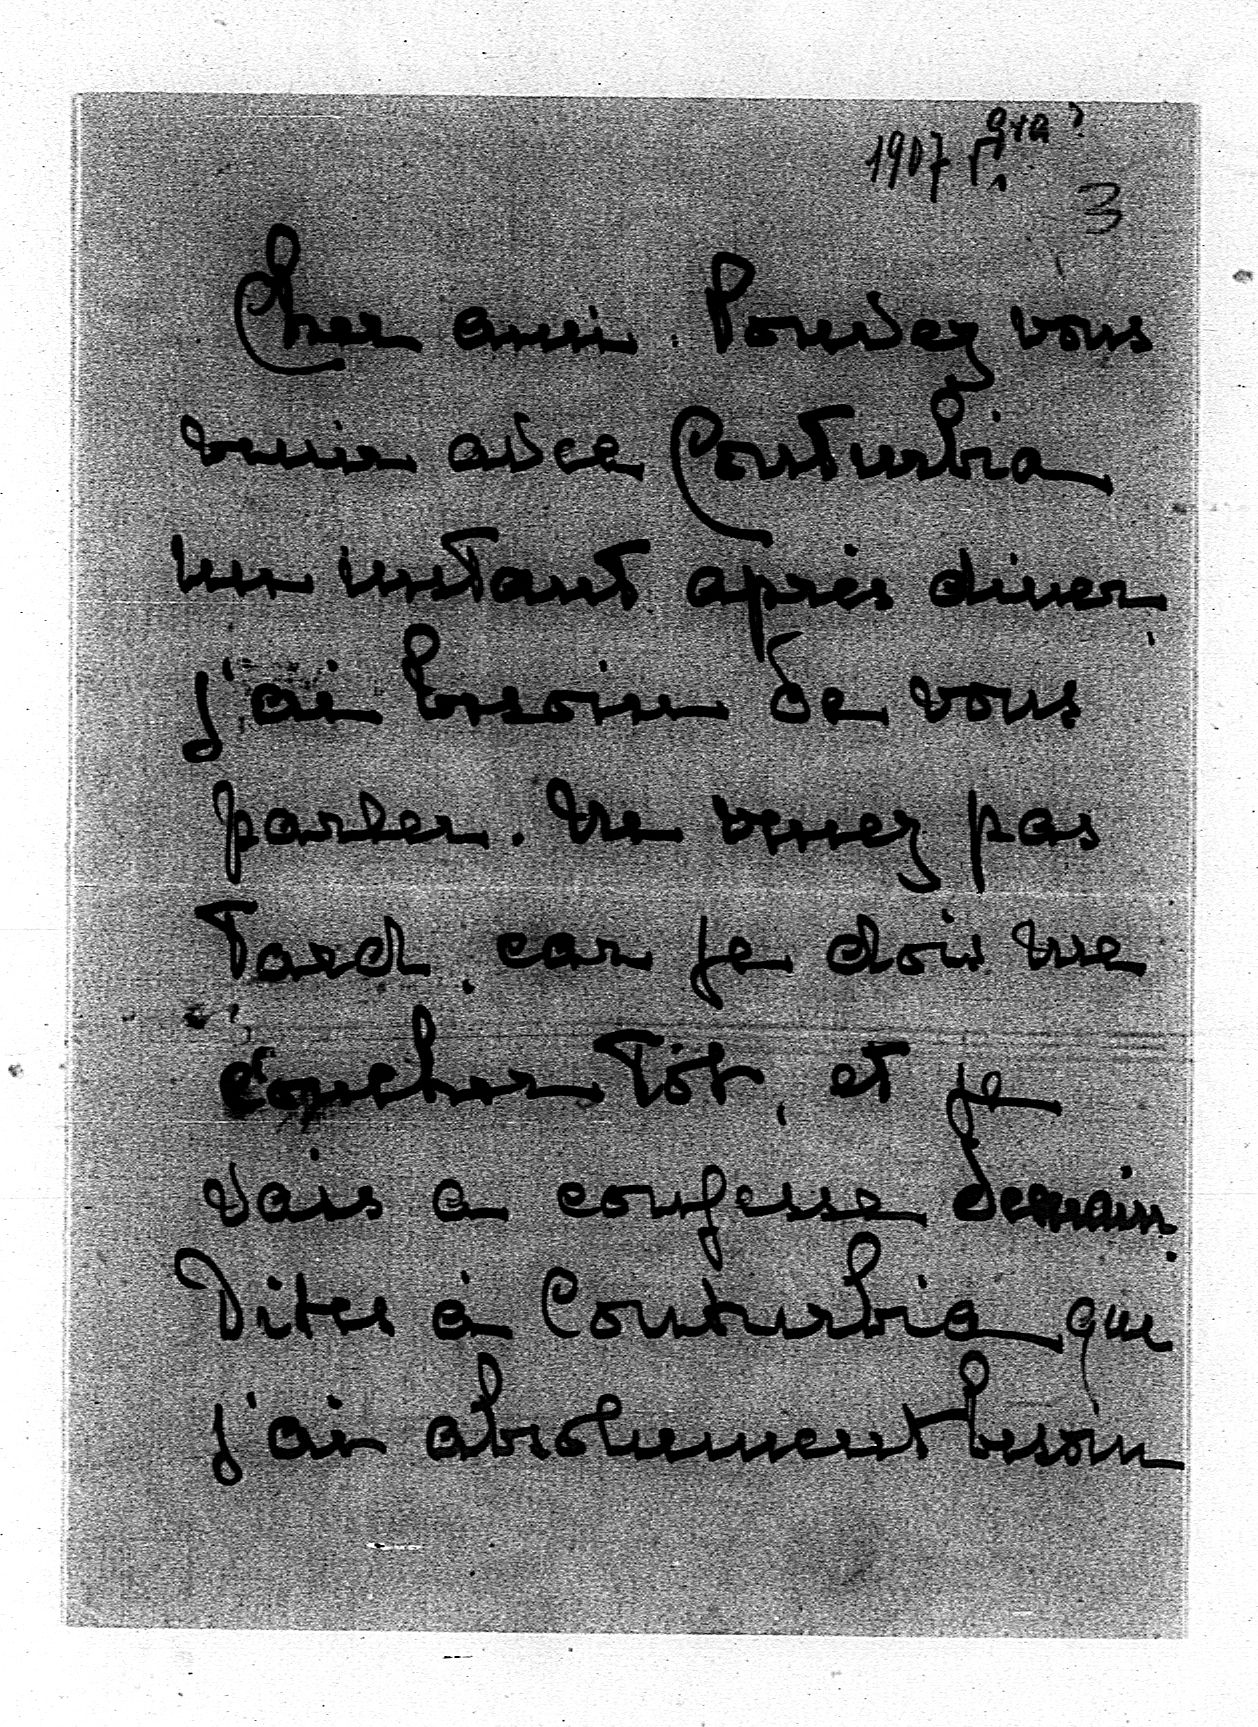 1907 г.
3
Cher ami. Pouvez vous
venir avec Couturbia
un instant après diner
j'ai besoin de vous
parler. Ne venez pas
Tard, car je dois me
coucher Tôt, et je
vais a confesse demain.
Dites à Couturbia que
j'ai absolument besoin